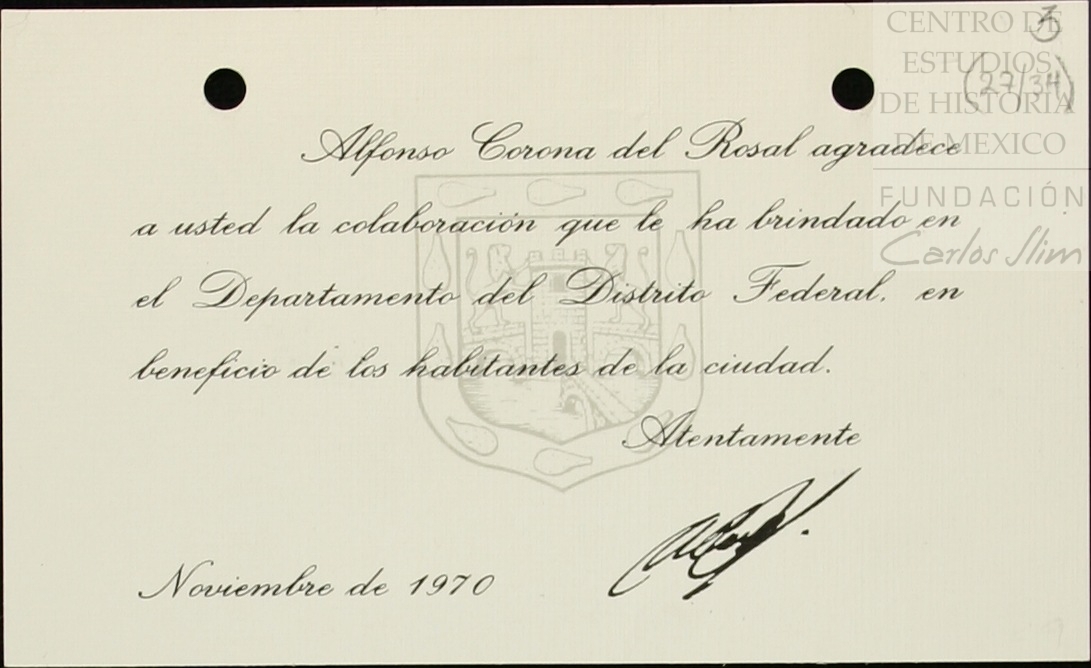 CENTRO DE
ESTUDIOS
DE HISTORIA
DE MEXICO
FUNDACIÓN
Carlos Slim
3
(27/34)
Alfonso Corona del Rosal agradece
a usted la colaboración que le ha brindado en
el Departamento del Distrito Federal, en
beneficio de los habitantes de la ciudad.
Atentamente
Noviembre de 1970